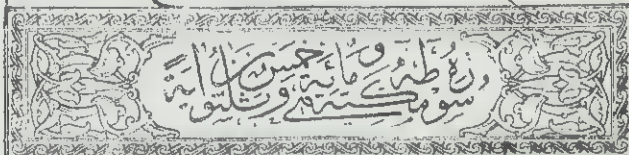 سورة طه مكية وهي مائة وخمس وثلثون اية